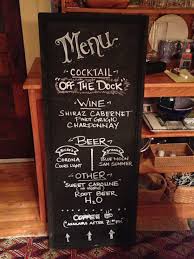 Menu
COCKTAIL
OFF THE DOCK
WINE
SHIRAZ CABERNET
PINOT GRIGIO
CHARDONNAY
BEER
CORONA BLUE MOON
COORS LIGHT SAM SUMMER
OTHER
"SWEET CAROLINE"
ROOT BEER
H2O
COFFEE
CANNOLIS AFTER